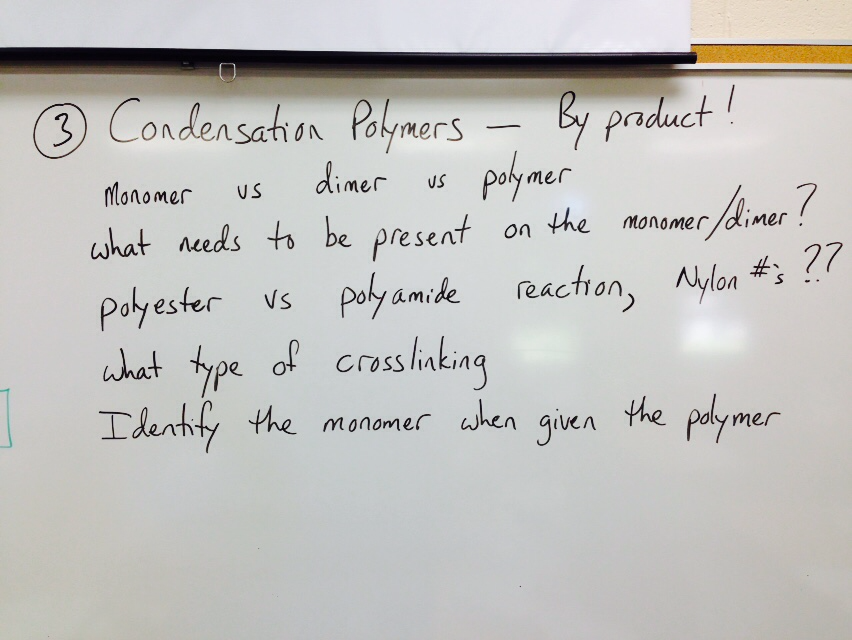 ③ Condensation Polymers — By product!
Monomer vs dimer vs polymer
what needs to be present on the monomer/dimer?
polyester vs polyamide reaction, Nylon #'s ??
what type of crosslinking
Identify the monomer when given the polymer